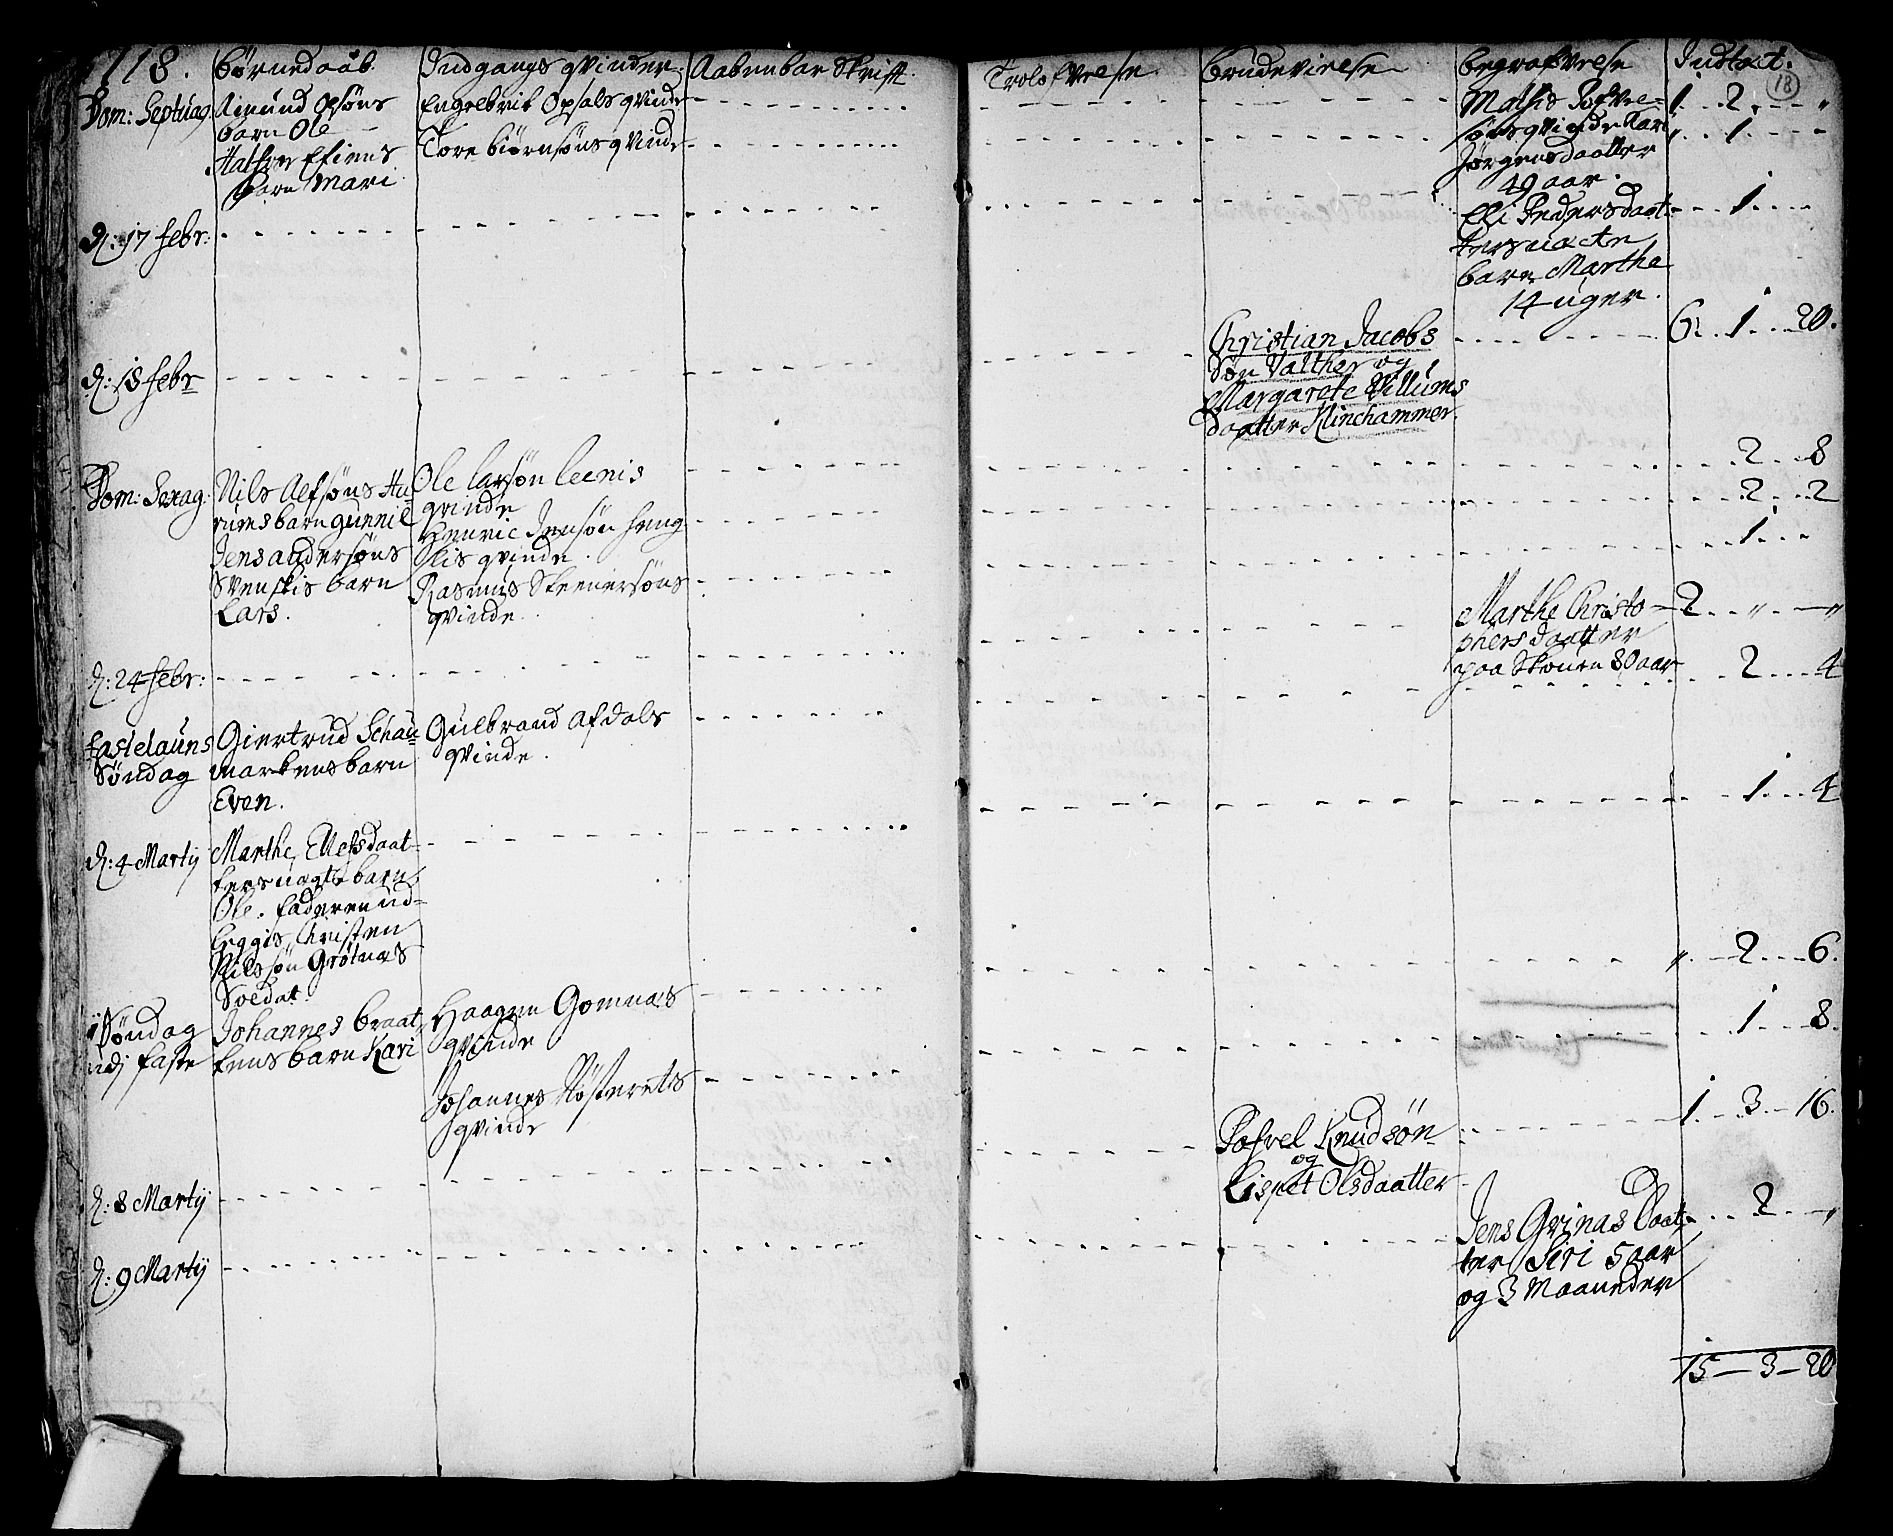 1718. Børnedaab. Indgangs qvinder. Aabenbar Skrift. Trolofvelse. Brudevielse. Begrafvelse Indtect.
18
Dom: Septuag
Amund Opsøns
barn Ole
barn Mari
Engelbrit Opsals qvinde
Tore Biørnsøns qvinde
søns qvinde Kari
Jørgensdaatter
49 aar.
1 . 2 . "
" . 1 .
d: 17 febr:
Eli Pedersdaat-
ters uægte
barn Marthe
14 uger.
1
d: 18 febr
Christian Jacobs
Søn Valther og
Margarete Villums
daatter Klinchammer.
6 . 1 . 20.
Dom: Sexag:
Nils Alfsøns Hu-
rums barn Gunnil
Jens andersøns
Svenskis barn
Lars.
Ole Larsøn Leenis
qvinde
Henric Jensøn Heng-
slis qvinde.
Rasmus Skeenersøns
qvinde.
2 . 8
2 . 2
1
d: 24 febr:
Marthe Christo-
phersdaatter
paa Skouen 80 aar
2 . " . "
2 . 4
fastelauns
Søndag
Giertrud Schau-
markens barn
Even.
Gulbrand Afdals
qvinde.
1 . 4
d: 4 Martij
Marthe Ellefsdaat-
ters uægte barn
Ole. faderen ud-
leggis Christen
Nilssøn Grøtnæs
Soldat.
" . 2 . 6.
Søndag
udj faste
Johannes Braat-
tens barn Kari
Haagen Gomnæs
qvinde
Johannes Røsterets
qvinde
1 . 8.
d: 8 Martij
Pofvel Knudsøn
og
Lispet Olsdaatter
1 . 3 . 16.
d: 9 Martij
Jens Grinas Daat-
ter Siri 5 aar
og 3 Maaneder
2 . "
15 — 3 — 20